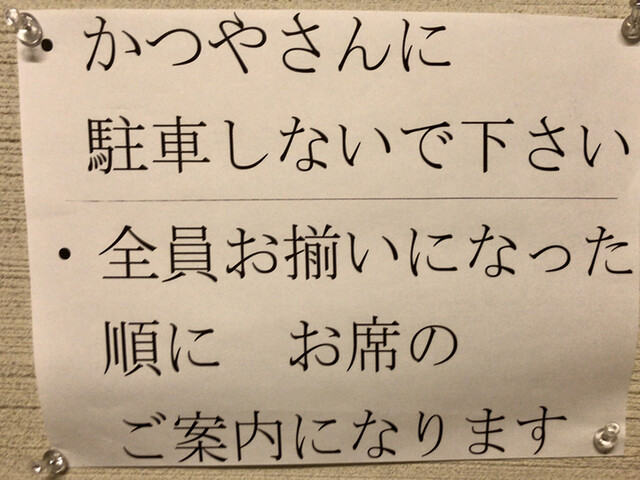 ・かつやさんに
駐車しないで下さい
・全員お揃いになった
順に　お席の
ご案内になります